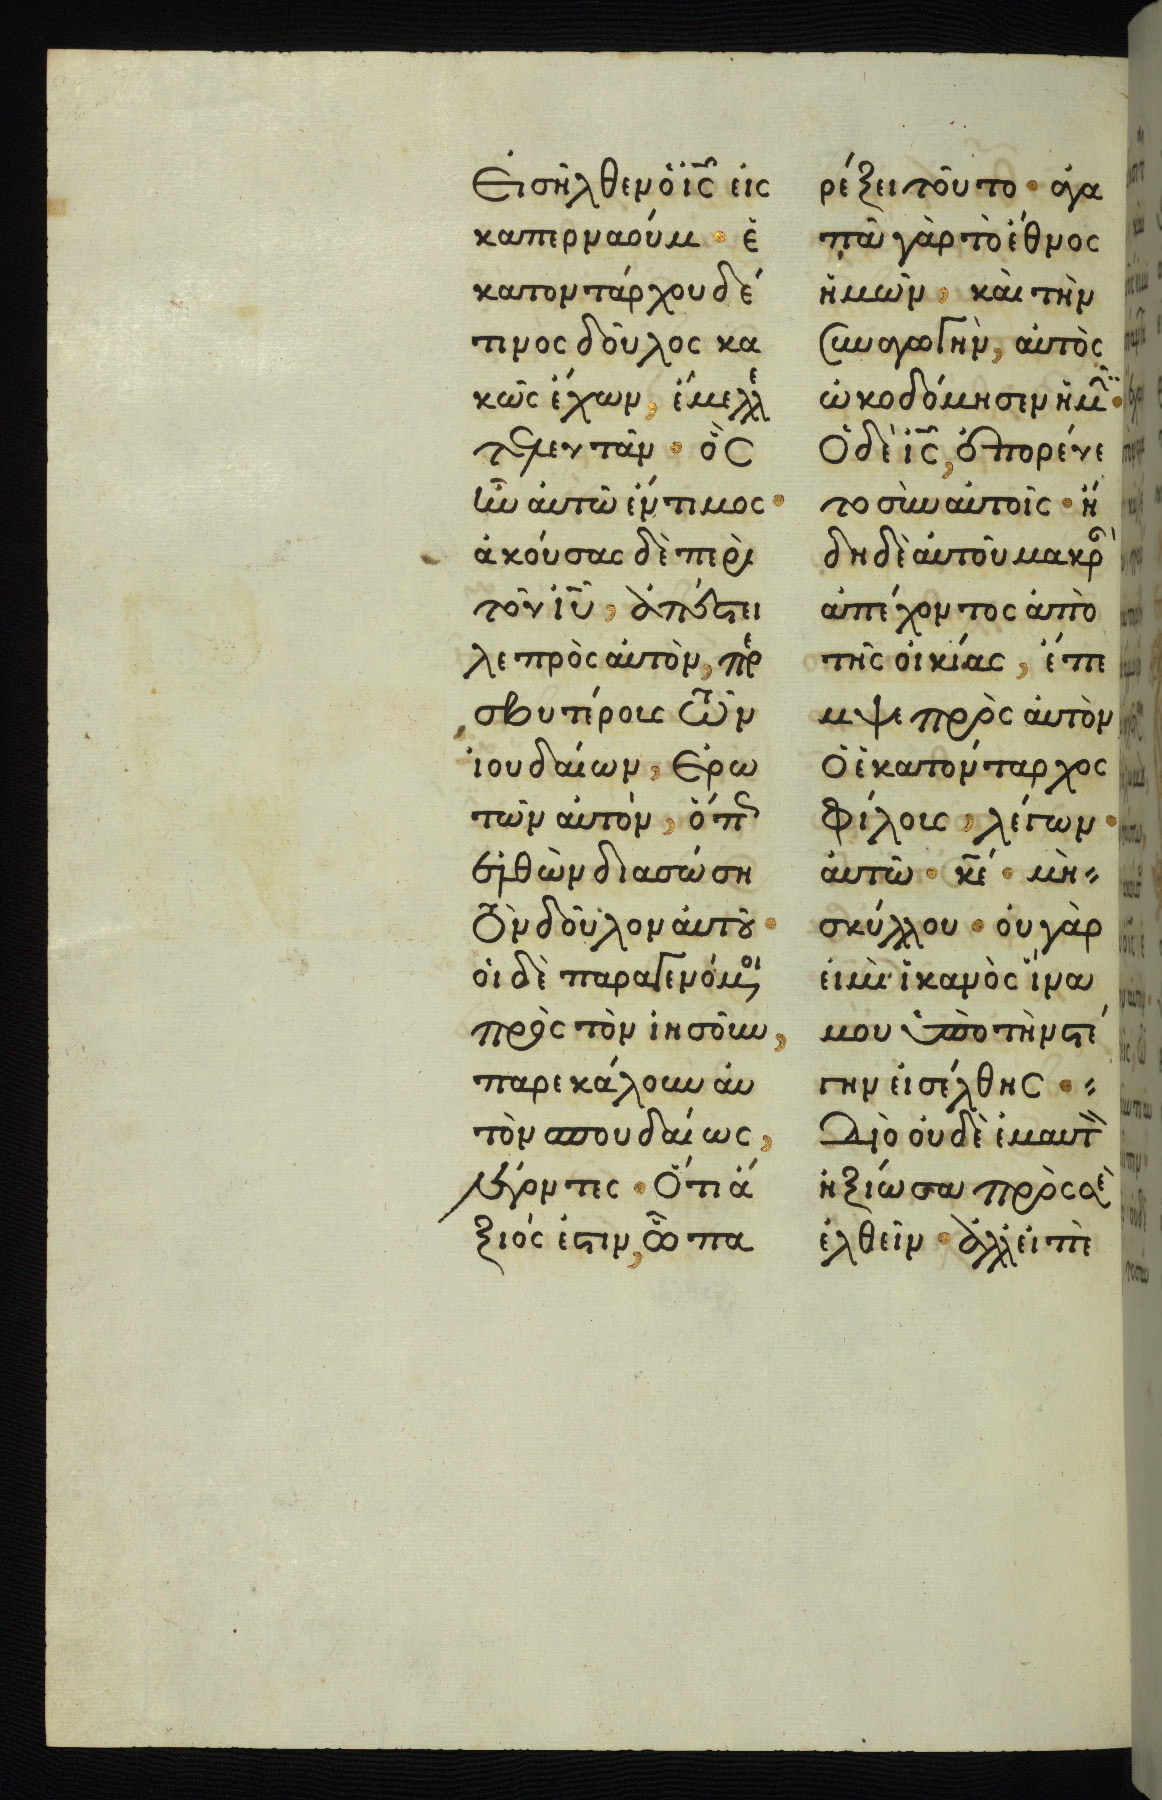 Εἰσῆλθεν ὁ ἰς̅ εἰς
καπερναούμ · ἑ
κατοντάρχου δέ
τινος δοῦλος κα
κῶς ἔχων, ἔμελλε
τελευτᾶν · ὃς
ἦν αὐτῶ ἔντιμος ·
ἀκούσας δὲ περὶ
τοῦ ἰῦ, ἀπέστει
λε πρὸς αὐτὸν, πρε
σβυτέρους τῶν
ἰουδαίων, Ἐρω
τῶν αὐτόν, ὅπως
ἐλθὼν διασώση
τὸν δοῦλον αὐτοῦ ·
οἱ δὲ παραγενόμενοι
πρὸς τὸν ἰησοῦν,
παρεκάλουν αὐ
τὸν σπουδαίως,
λέγοντες · Ὅτι ἄ
ξιός ἐστιν, ὧ πα
ρέξει τοῦτο · ἀγα
πᾶ γὰρ τὸ ἔθνος
ἡμῶν, καὶ τὴν
συναγωγὴν, αὐτὸς
ὠκοδόμησεν ἡμῖν ·
Ὁ δὲ ἰς̅, ἐπορεύε
το σὺν αὐτοῖς · ἤ
δη δὲ αὐτοῦ μακρὰν
ἀπέχοντος ἀπὸ
τῆς οἰκίας, ἔπε
μψε πρὸς αὐτὸν
Ὁ ἑκατόνταρχος
Φίλους, λέγων ·
αὐτῶ · κέ̅ · μὴ
σκύλλου · οὐ γὰρ
εἰμὶ ἱκανὸς ἵνα
μου ὑπὸ τὴν στέ
γην εἰσέλθης ·
Διὸ οὐδὲ ἐμαυτὸν
ἠξίωσα πρὸς σὲ
ἐλθεῖν · ἀλλὰ εἰπὲ